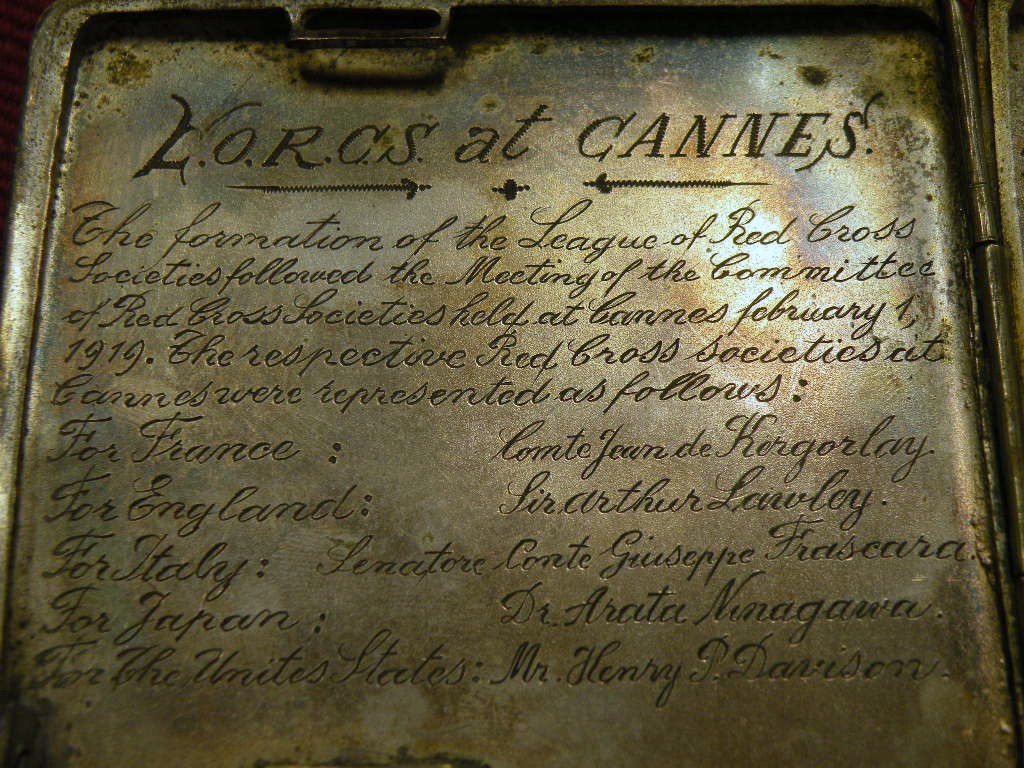 L.O.R.C.S. at CANNES.
The formation of the League of Red Cross
Societies followed the Meeting of the Committee
of Red Cross Societies held at Cannes february 1,
1919. The respective Red Cross societies at
Cannes were represented as follows:
For France : Comte Jean de Kergorlay.
For England: Sir arthur Lawley.
For Italy: Senatore Conte Giuseppe Frascara.
For Japan : Dr. Arata Ninagawa.
For The Unites States: Mr. Henry P. Davison.